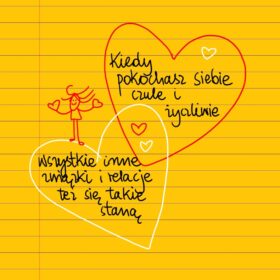 Kiedy
pokochasz siebie
czule i
życzliwie
wszystkie inne
związki i relacje
też się takie
staną